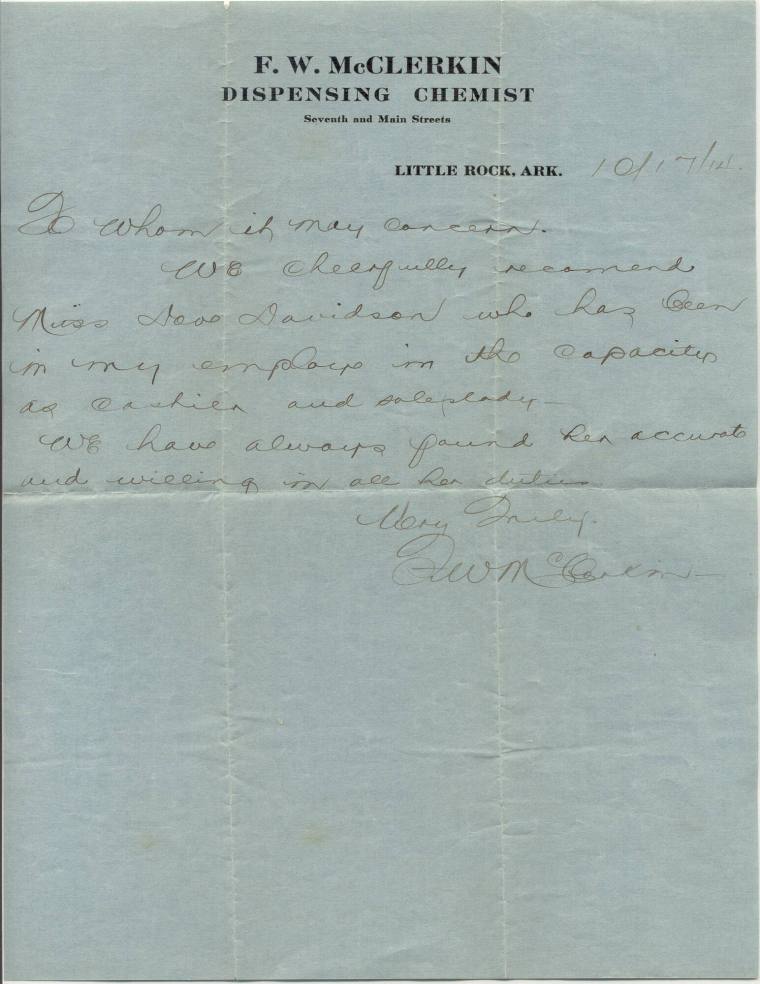 F. W. McCLERKIN
DISPENSING CHEMIST
Seventh and Main Streets
LITTLE ROCK, ARK. 10/17/14.
To whom it may concern.
We cheerfully recomend
Miss Dove Davidson who has been
in my employe in the capacity
as cashier and saleslady—
We have always found her accurate
and willing in all her duties
Very Truly.
F W McClerkin—